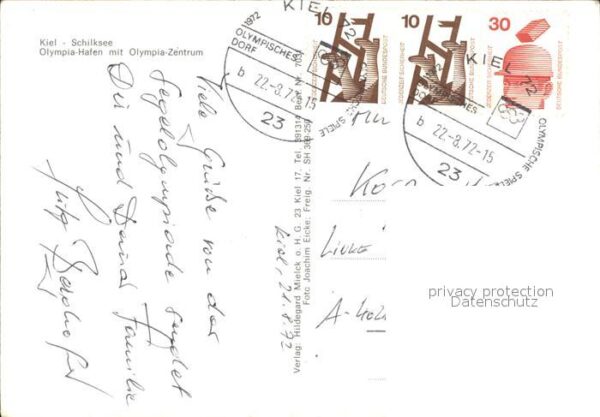 Kiel - Schilksee
Olympia-Hafen mit Olympia-Zentrum
Viele Grüße von der
Segelolympiade sendet
Dir und Deiner Familie
Fritz
Verlag: Hildegard Mielck o. H. G. 23 Kiel 17. Tel. 391314 Best. Nr.
Foto Joachim Eicke. Freig. Nr. SH
Kiel, 21.8.72
10
10
30
JEDERZEIT SICHERHEIT
DEUTSCHE BUNDESPOST
JEDERZEIT SICHERHEIT
DEUTSCHE BUNDESPOST
JEDERZEIT SICHERHEIT
DEUTSCHE BUNDESPOST
KIEL 72
1972
OLYMPISCHES
DORF
b 22.-8.72-15
23
KIEL 72
OLYMPISCHE SPIELE
b 22.-8.72-15
23
privacy protection
Datenschutz